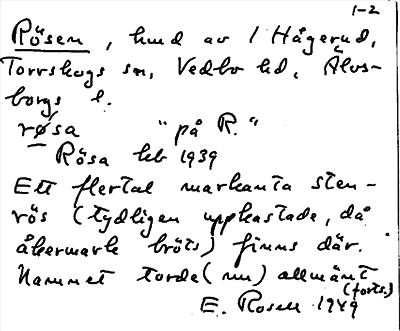 1-2
Rösen, hmd av 1 Hågerud,
Torrskogs sn, Vedbo hd, Älvs-
borgs l.
røsa "på R."
Rösa hb 1939
Ett flertal markanta sten-
rös (tydligen uppkastade, då
åkermark bröts) finns där.
Namnet torde (nu) allmänt
(forts.)
E. Rosell 1949